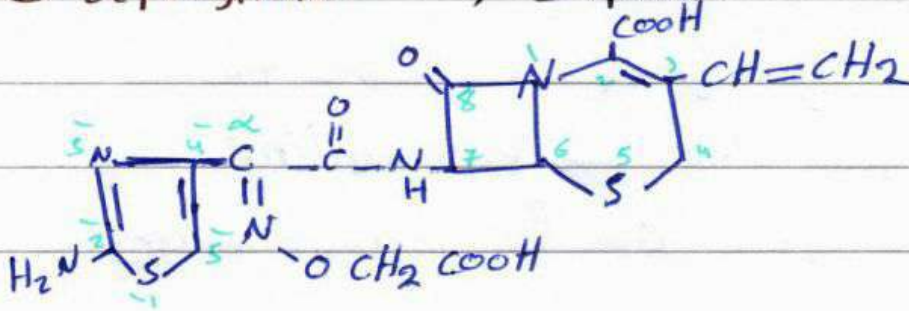 COOH
O 1
N 2 3 CH=CH2
8
O
3 N 4 α C C N 7 6 5 4
H S
2 N 5
H2N S O CH2 COOH
1